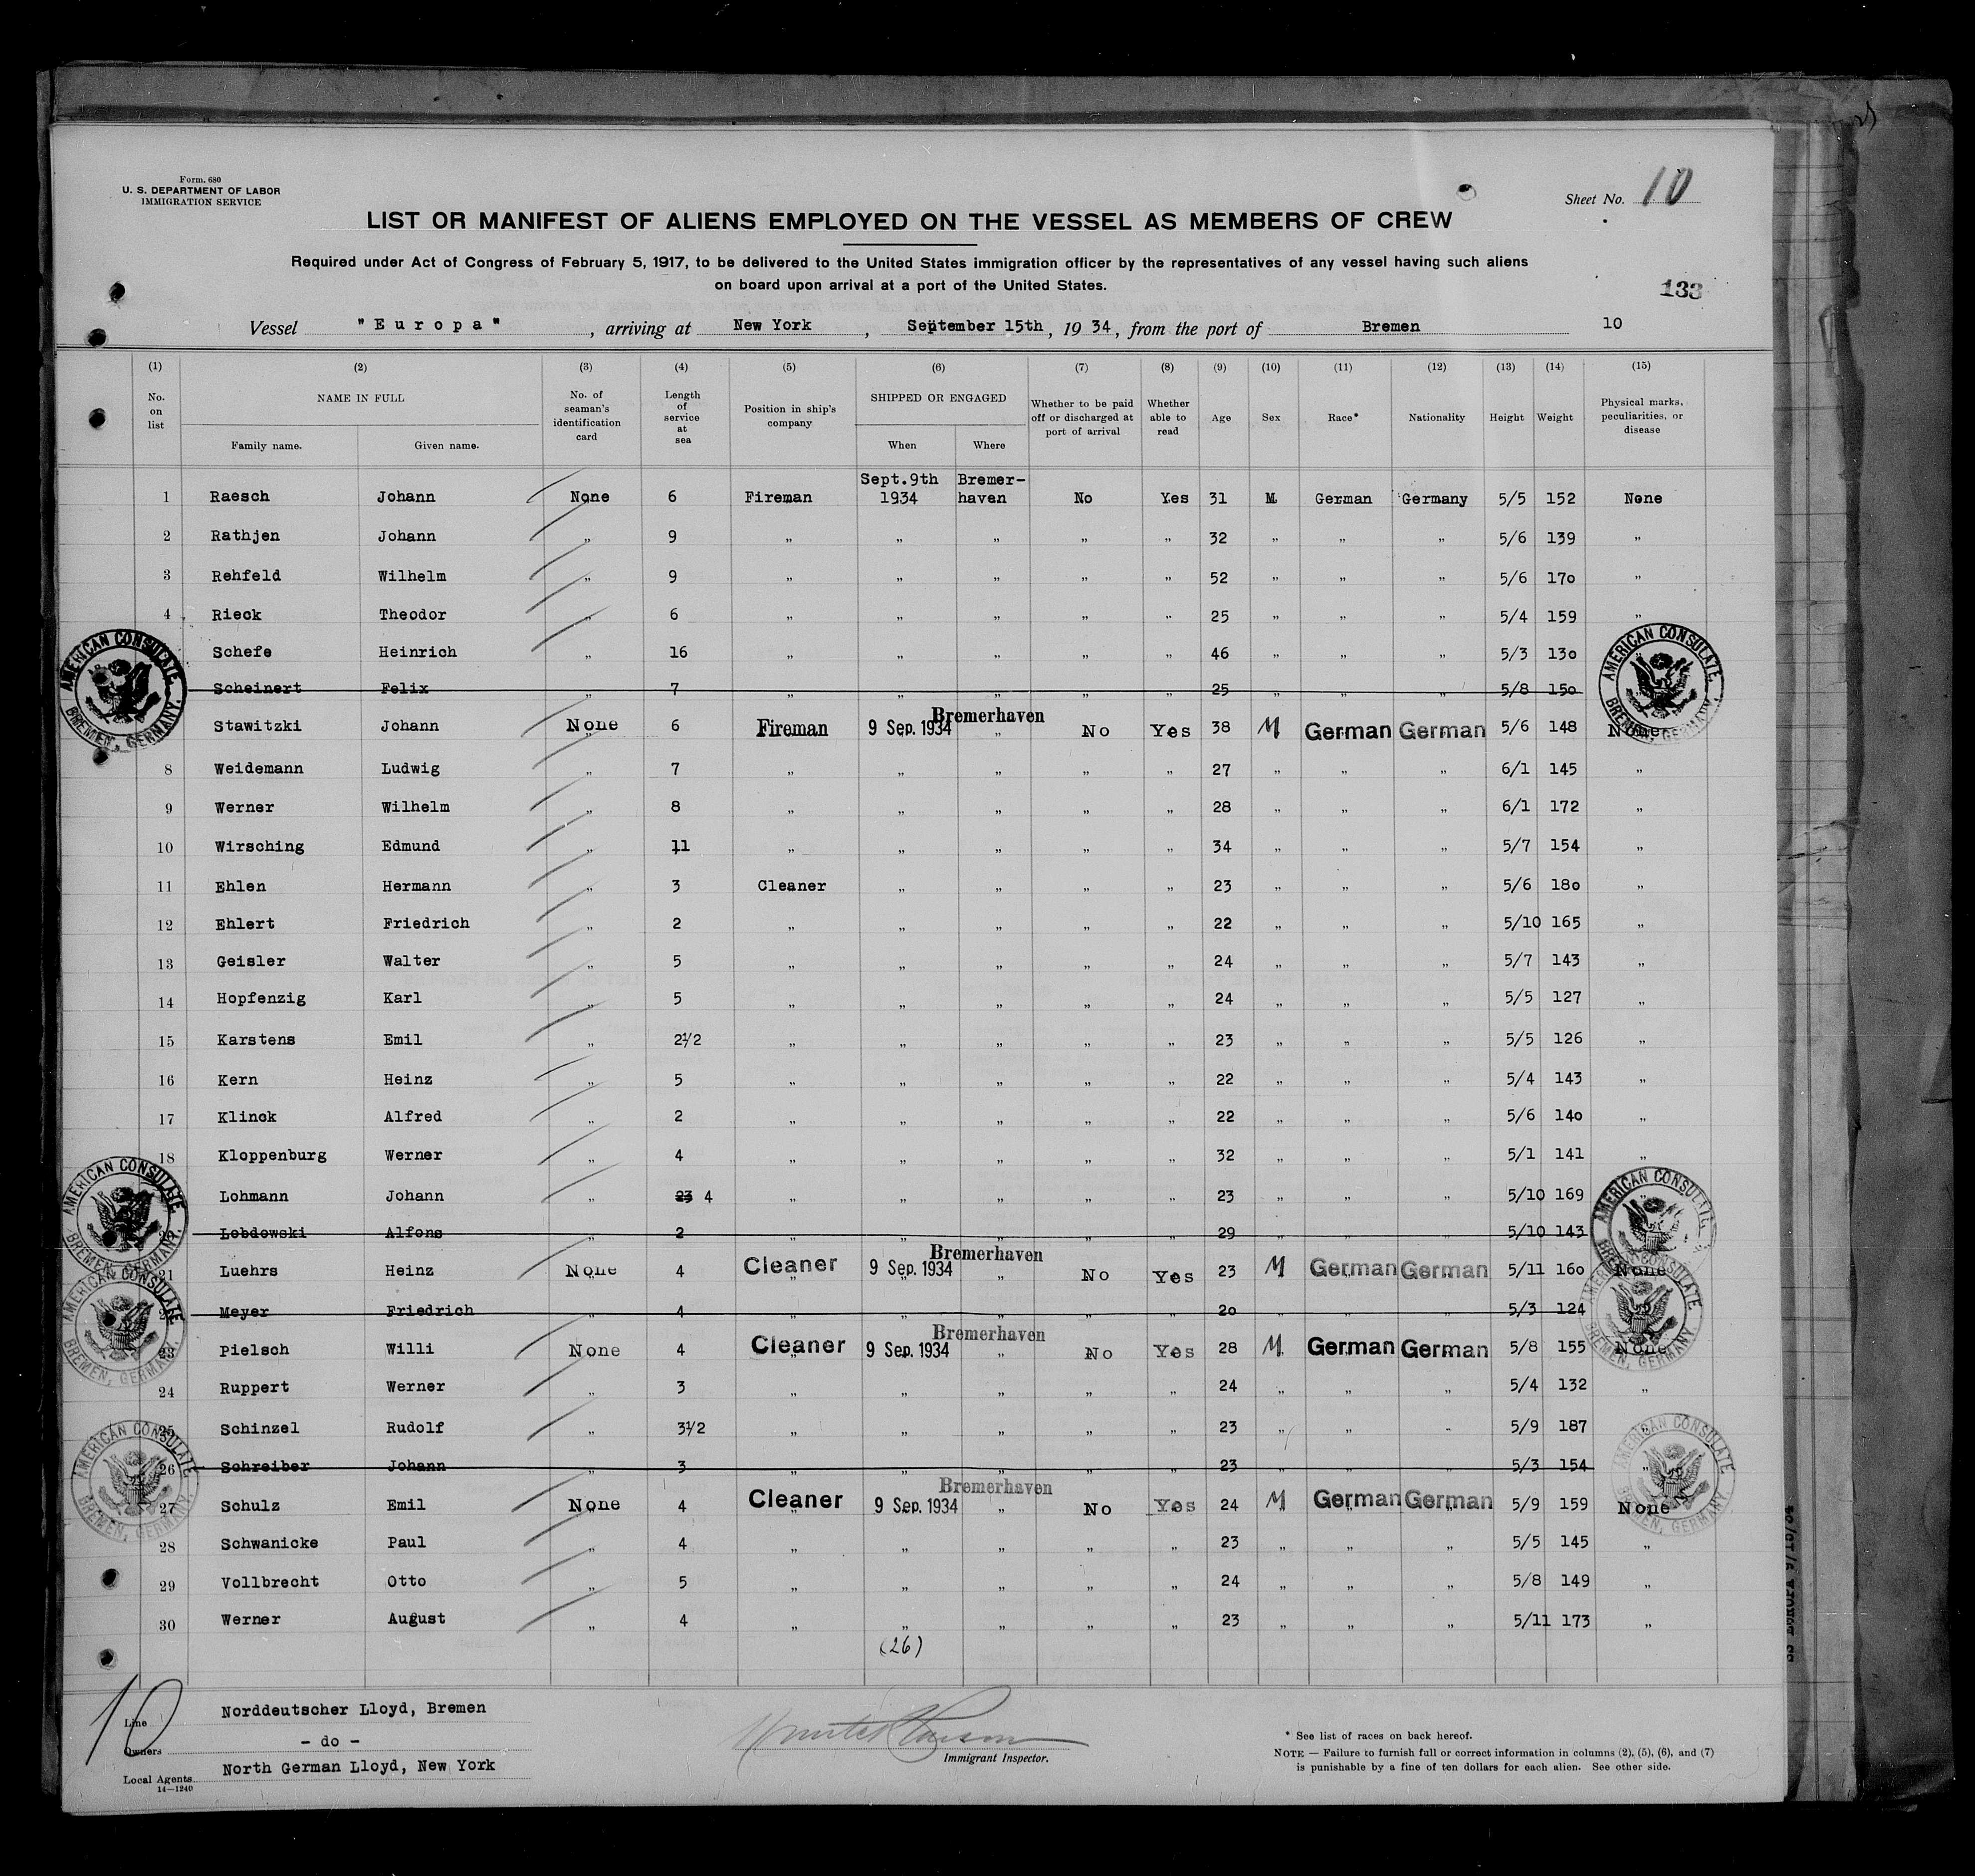 Form. 680
U. S. DEPARTMENT OF LABOR
IMMIGRATION SERVICE
Sheet No. 10
LIST OR MANIFEST OF ALIENS EMPLOYED ON THE VESSEL AS MEMBERS OF CREW
Required under Act of Congress of February 5, 1917, to be delivered to the United States immigration officer by the representatives of any vessel having such aliens
on board upon arrival at a port of the United States.
133
Vessel "Europa", arriving at New York, September 15th, 19 34, from the port of Bremen 10
(1) (2) (3) (4) (5) (6) (7) (8) (9) (10) (11) (12) (13) (14) (15)
No. on list NAME IN FULL Family name. Given name. No. of seaman's identification card Length of service at sea Position in ship's company SHIPPED OR ENGAGED When Where Whether to be paid off or discharged at port of arrival Whether able to read Age Sex Race* Nationality Height Weight Physical marks, peculiarities, or disease
1 Raesch Johann None 6 Fireman Sept.9th 1934 Bremer-haven No Yes 31 M German Germany 5/5 152 None
2 Rathjen Johann „ 9 „ „ „ „ „ 32 „ „ „ 5/6 139 „
3 Rehfeld Wilhelm „ 9 „ „ „ „ „ 52 „ „ „ 5/6 170 „
4 Rieck Theodor „ 6 „ „ „ „ „ 25 „ „ „ 5/4 159 „
Schefe Heinrich „ 16 „ „ „ „ „ 46 „ „ „ 5/3 130
Scheinert Felix „ 7 „ „ „ „ „ 25 „ „ „ 5/8 150
Stawitzki Johann None 6 Fireman 9 Sep. 1934 Bremerhaven No Yes 38 M German German 5/6 148 None
8 Weidemann Ludwig „ 7 „ „ „ „ „ 27 „ „ „ 6/1 145 „
9 Werner Wilhelm „ 8 „ „ „ „ „ 28 „ „ „ 6/1 172 „
10 Wirsching Edmund „ 11 „ „ „ „ „ 34 „ „ „ 5/7 154 „
11 Ehlen Hermann „ 3 Cleaner „ „ „ „ 23 „ „ „ 5/6 180 „
12 Ehlert Friedrich „ 2 „ „ „ „ „ 22 „ „ „ 5/10 165 „
13 Geisler Walter „ 5 „ „ „ „ „ 24 „ „ „ 5/7 143 „
14 Hopfenzig Karl „ 5 „ „ „ „ „ 24 „ „ „ 5/5 127 „
15 Karstens Emil „ 2½ „ „ „ „ „ 23 „ „ „ 5/5 126 „
16 Kern Heinz „ 5 „ „ „ „ „ 22 „ „ „ 5/4 143 „
17 Klinck Alfred „ 2 „ „ „ „ „ 22 „ „ „ 5/6 140 „
18 Kloppenburg Werner „ 4 „ „ „ „ „ 32 „ „ „ 5/1 141 „
Lohmann Johann „ 23 4 „ „ „ „ „ 23 „ „ „ 5/10 169 „
Lobdowski Alfons „ 2 „ „ „ „ „ 29 „ „ „ 5/10 143
21 Luehrs Heinz None 4 Cleaner 9 Sep. 1934 Bremerhaven No Yes 23 M German German 5/11 160 None
Meyer Friedrich „ 4 „ „ „ „ „ 20 „ „ „ 5/3 124
23 Pielsch Willi None 4 Cleaner 9 Sep. 1934 Bremerhaven No Yes 28 M German German 5/8 155 None
24 Ruppert Werner „ 3 „ „ „ „ „ 24 „ „ „ 5/4 132 „
25 Schinzel Rudolf „ 3½ „ „ „ „ „ 23 „ „ „ 5/9 187
26 Schreiber Johann „ 3 „ „ „ „ „ 23 „ „ „ 5/3 154 „
27 Schulz Emil None 4 Cleaner 9 Sep. 1934 Bremerhaven No Yes 24 M German German 5/9 159 None
28 Schwanicke Paul „ 4 „ „ „ „ „ 23 „ „ „ 5/5 145 „
29 Vollbrecht Otto „ 5 „ „ „ „ „ 24 „ „ „ 5/8 149 „
30 Werner August „ 4 „ „ „ „ „ 23 „ „ „ 5/11 173 „
(26)
AMERICAN CONSULATE, BREMEN, GERMANY.
AMERICAN CONSULATE, BREMEN, GERMANY.
AMERICAN CONSULATE, BREMEN, GERMANY.
AMERICAN CONSULATE, BREMEN, GERMANY.
AMERICAN CONSULATE, BREMEN, GERMANY.
AMERICAN CONSULATE, BREMEN, GERMANY.
AMERICAN CONSULATE, BREMEN, GERMANY.
AMERICAN CONSULATE, BREMEN, GERMANY.
10
Line Norddeutscher Lloyd, Bremen
Owners - do -
Local Agents North German Lloyd, New York
14—1240
Immigrant Inspector.
* See list of races on back hereof.
NOTE — Failure to furnish full or correct information in columns (2), (5), (6), and (7)
is punishable by a fine of ten dollars for each alien. See other side.
SS EUROPA 9/15/34